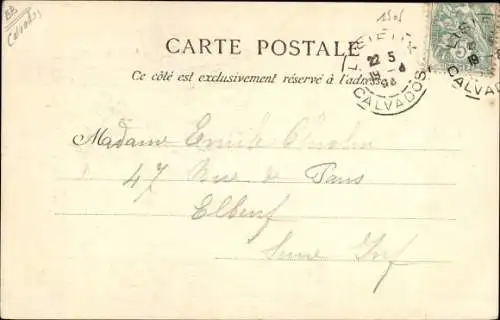 BB
Calvados
1505
CARTE POSTALE
Ce côté est exclusivement réservé à l'adresse
22 5
CALVADOS
CALVADOS
Madame Emile
47 Rue de Paris
Elbeuf
Seine Inf